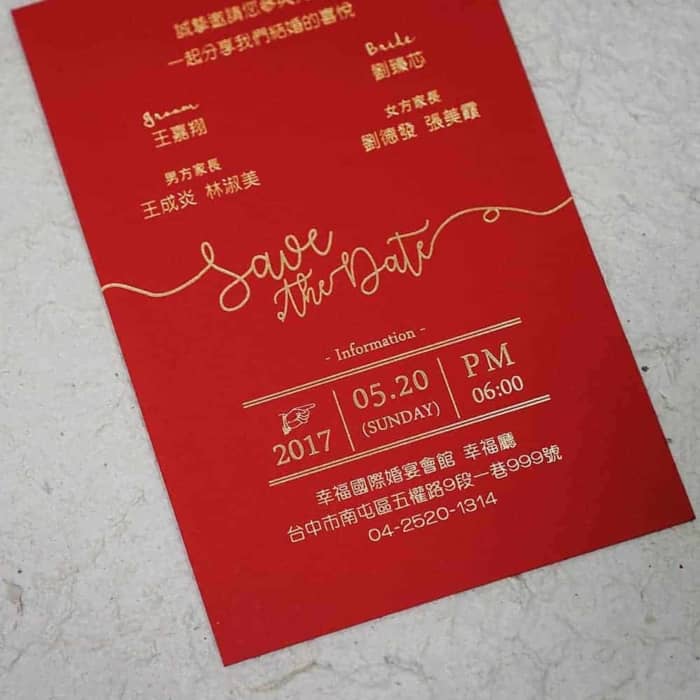 誠摯邀請您參與
一起分享我們結婚的喜悅
Groom
王嘉翔
男方家長
王成炎 林淑美
Bride
劉臻芯
女方家長
劉德發 張美霞
Save
the Date
- Information -
2017
05.20
(SUNDAY)
PM
06:00
幸福國際婚宴會館 幸福廳
台中市南屯區五權路9段一巷999號
04-2520-1314